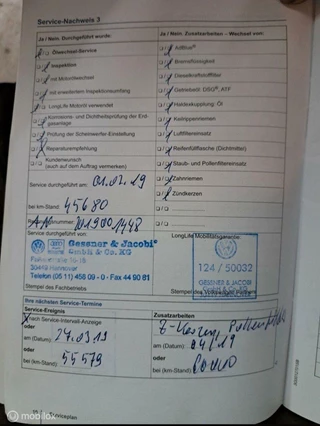 Service-Nachweis 3
Ja / Nein: Durchgeführt wurde:
Ölwechsel-Service
Inspektion
mit Motorölwechsel
mit erweitertem Inspektionsumfang
LongLife Motoröl verwendet
Korrosions- und Dichtheitsprüfung der Erdgasanlage
Prüfung der Scheinwerfer-Einstellung
Reparaturempfehlung
Kundenwunsch
(auch auf dem Auftrag vermerken)
Service durchgeführt am: 01.02.19
bei km-Stand: 45680
01900 1448
Service durchgeführt von:
Gessner & Jacobi
GmbH & Co. KG
30453 Hannover
Telefon (05 11) 458 09 - 0 - Fax 44 90 81
Stempel des Fachbetriebs
Ja / Nein: Zusatzarbeiten – Wechsel von:
AdBlue®
Bremsflüssigkeit
Dieselkraftstofffilter
Getriebeöl: DSG®, ATF
Haldexkupplung: Öl
Keilrippenriemen
Luftfiltereinsatz
Reifenfüllflasche (Dichtmittel)
Staub- und Pollenfiltereinsatz
Zahnriemen
Zündkerzen
LongLife Mobilitätsgarantie:
124 / 50032
GESSNER & JACOBI
GmbH & Co. KG
Ihre nächsten Service-Termine
Service-Ereignis
nach Service-Intervall-Anzeige
oder
am (Datum): 27.09.19
oder
bei (km-Stand): 55579
Zusatzarbeiten:
am (Datum): 04/19
oder
bei (km-Stand):
Serviceplan
© Mobilox